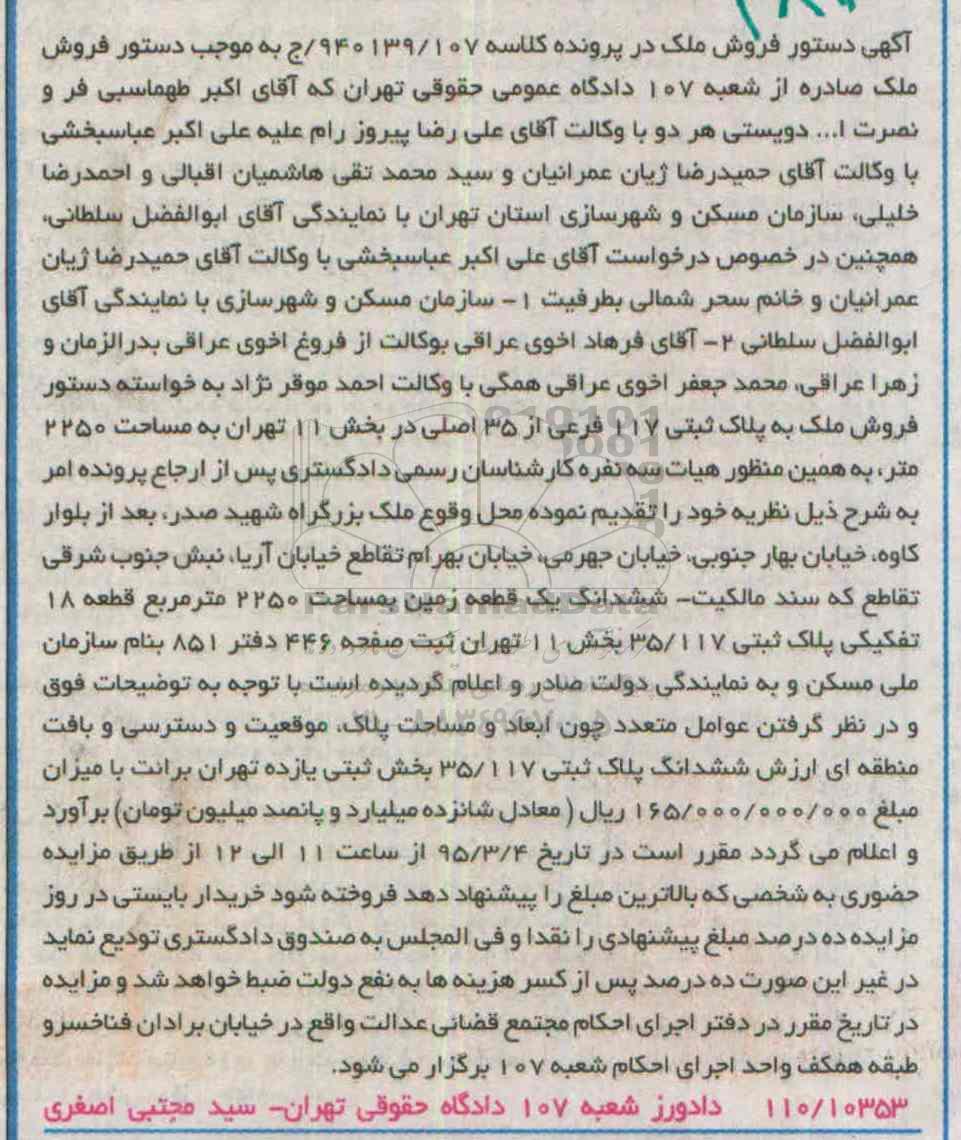 آگهی دستور فروش ملک در پرونده کلاسه ۹۴۰۱۳۹/۱۰۷/ج به موجب دستور فروش
ملک صادره از شعبه ۱۰۷ دادگاه عمومی حقوقی تهران که آقای اکبر طهماسبی فر و
نصرت ا... دویستی هر دو با وکالت آقای علی رضا پیروز رام علیه علی اکبر عباسبخشی
با وکالت آقای حمیدرضا ژیان عمرانیان و سید محمد تقی هاشمیان اقبالی و احمدرضا
خلیلی، سازمان مسکن و شهرسازی استان تهران با نمایندگی آقای ابوالفضل سلطانی،
همچنین در خصوص درخواست آقای علی اکبر عباسبخشی با وکالت آقای حمیدرضا ژیان
عمرانیان و خانم سحر شمالی بطرفیت ۱- سازمان مسکن و شهرسازی با نمایندگی آقای
ابوالفضل سلطانی ۲- آقای فرهاد اخوی عراقی بوکالت از فروغ اخوی عراقی بدرالزمان و
زهرا عراقی، محمد جعفر اخوی عراقی همگی با وکالت احمد موقر نژاد به خواسته دستور
فروش ملک به پلاک ثبتی ۱۱۷ فرعی از ۳۵ اصلی در بخش ۱۱ تهران به مساحت ۲۲۵۰
متر، به همین منظور هیات سه نفره کارشناسان رسمی دادگستری پس از ارجاع پرونده امر
به شرح ذیل نظریه خود را تقدیم نموده محل وقوع ملک بزرگراه شهید صدر، بعد از بلوار
کاوه، خیابان بهار جنوبی، خیابان جهرمی، خیابان بهرام تقاطع خیابان آریا، نبش جنوب شرقی
تقاطع که سند مالکیت- ششدانگ یک قطعه زمین بمساحت ۲۲۵۰ مترمربع قطعه ۱۸
تفکیکی پلاک ثبتی ۳۵/۱۱۷ بخش ۱۱ تهران ثبت صفحه ۴۴۶ دفتر ۸۵۱ بنام سازمان
ملی مسکن و به نمایندگی دولت صادر و اعلام گردیده است با توجه به توضیحات فوق
و در نظر گرفتن عوامل متعدد چون ابعاد و مساحت پلاک، موقعیت و دسترسی و بافت
منطقه ای ارزش ششدانگ پلاک ثبتی ۳۵/۱۱۷ بخش ثبتی یازده تهران برانت با میزان
مبلغ ۱۶۵/۰۰۰/۰۰۰/۰۰۰ ریال (معادل شانزده میلیارد و پانصد میلیون تومان) برآورد
و اعلام می گردد مقرر است در تاریخ ۹۵/۳/۴ از ساعت ۱۱ الی ۱۲ از طریق مزایده
حضوری به شخصی که بالاترین مبلغ را پیشنهاد دهد فروخته شود خریدار بایستی در روز
مزایده ده درصد مبلغ پیشنهادی را نقدا و فی المجلس به صندوق دادگستری تودیع نماید
در غیر این صورت ده درصد پس از کسر هزینه ها به نفع دولت ضبط خواهد شد و مزایده
در تاریخ مقرر در دفتر اجرای احکام مجتمع قضائی عدالت واقع در خیابان برادان فناخسرو
طبقه همکف واحد اجرای احکام شعبه ۱۰۷ برگزار می شود.
۱۱۰/۱۰۳۵۳ دادورز شعبه ۱۰۷ دادگاه حقوقی تهران- سید مجتبی اصغری